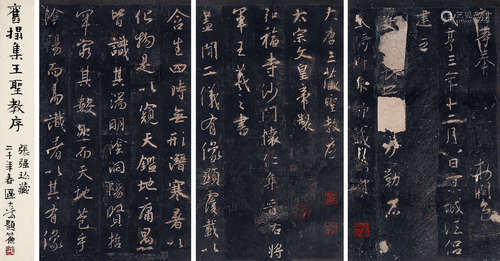 舊搨集王聖教序
張強珍藏
大唐三藏聖教序
太宗文皇帝製
弘福寺沙門懷仁集晉右將
軍王羲之書
蓋聞二儀有像顯覆載以
含生四時無形潛寒暑以
化物是以窺天鑑地庸愚
皆識其端明陰洞陽賢哲
罕窮其數然而天地苞乎
陰陽而易識者以其有像
亨三年十二月八日京城法侶
建立
勒石